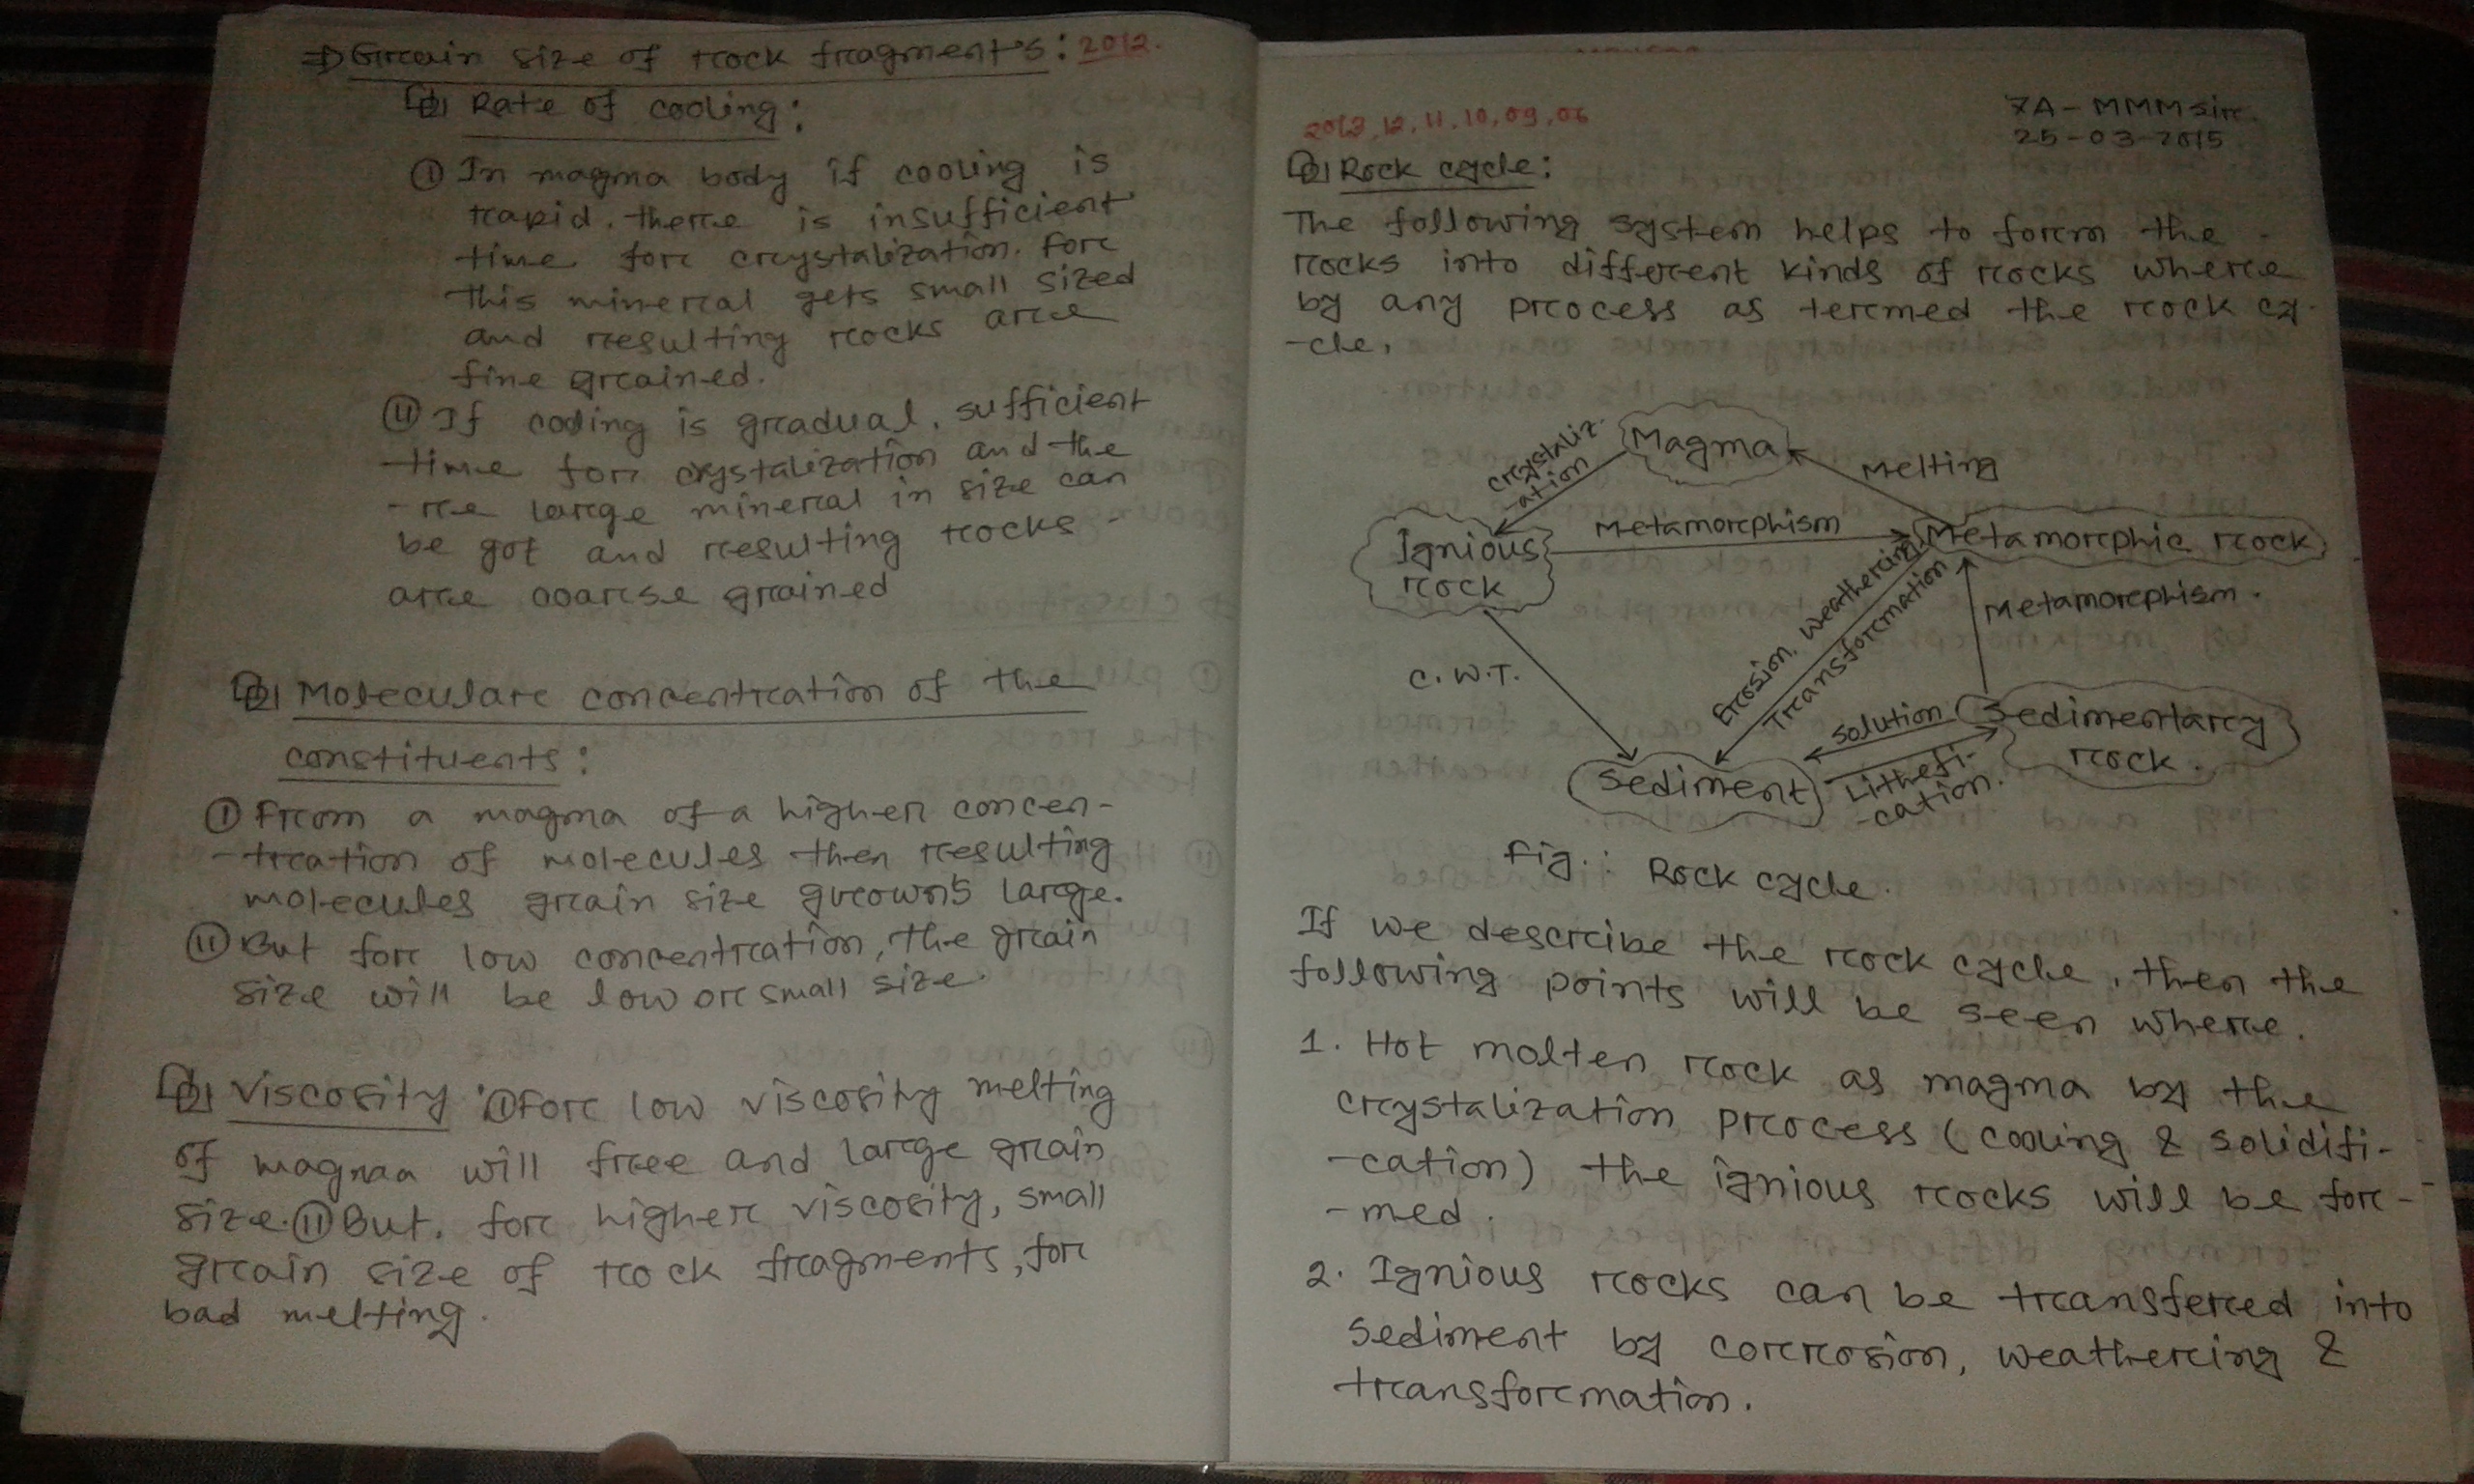 ⇒ Grain size of rock fragment's: 2012.
Rate of cooling:
① In magma body if cooling is
rapid. there is insufficient
time for crystalization. For
this mineral gets small sized
and resulting rocks are
fine grained.
⑪ If cooling is gradual, sufficient
time for crystalization and the
-re large mineral in size can
be got and resulting rocks -
are coarse grained
Molecular concentration of the
constituents:
① From a magma of a higher concen-
-tration of molecules then resulting
molecules grain size grown's large.
⑪ But for low concentration, the grain
size will be low or small size.
Viscosity: ① For low viscosity melting
of magma will free and large grain
size. ⑪ But, for higher viscosity, small
grain size of rock fragments, for
bad melting.
7A - MMM sir.
25-03-2015
2013, 12, 11, 10, 09, 06
Rock cycle:
The following system helps to form the
rocks into different kinds of rocks where
by any process as termed the rock cy-
-cle.
Magma
crystaliz-
-ation
Melting
Ignious
rock
Metamorphism
Metamorphic rock
Erosion, Weathering,
Transformation
Metamorphism.
C.W.T.
Solution
Sedimentary
rock.
Sediment
Lithefi-
-cation.
Fig.: Rock cycle.
If we describe the rock cycle, then the
following points will be seen where.
1. Hot molten rock as magma by the
crystalization process (cooling & solidifi-
-cation) the ignious rocks will be for-
-med.
2. Ignious rocks can be transfered into
sediment by corrosion, weathering &
transformation.